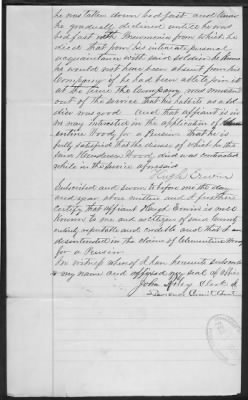 he was taken down bed fast and
he gradually declined until he was
bed fast with Pneumonia from which he
died that from his intimate personal
acquaintance with said soldier he knows
he would not have been absent from his
Company if he had been able to join it
at the time the Company was mustered
out of the service that his habits as a sol
dier was good and that affiant is in
no way interested in the application of
entine Hoody for a Pension that he is
fully satisfied that the disease of which the
said Henderson Hoody died was contracted
while in the service aforesaid
Hugh Ervin
Subscribed and sworn to before me the day
and year above written and I further
certify that affiant Hugh Ervin is well
known to me and a citizen of said County
entirely reputable and credible and that I am
disinterested in the claim of Clementine
for a Pension
In witness whereof I have hereunto subscribed
my name and affixed my seal of office
John Kiley Clerk of
Circuit Court